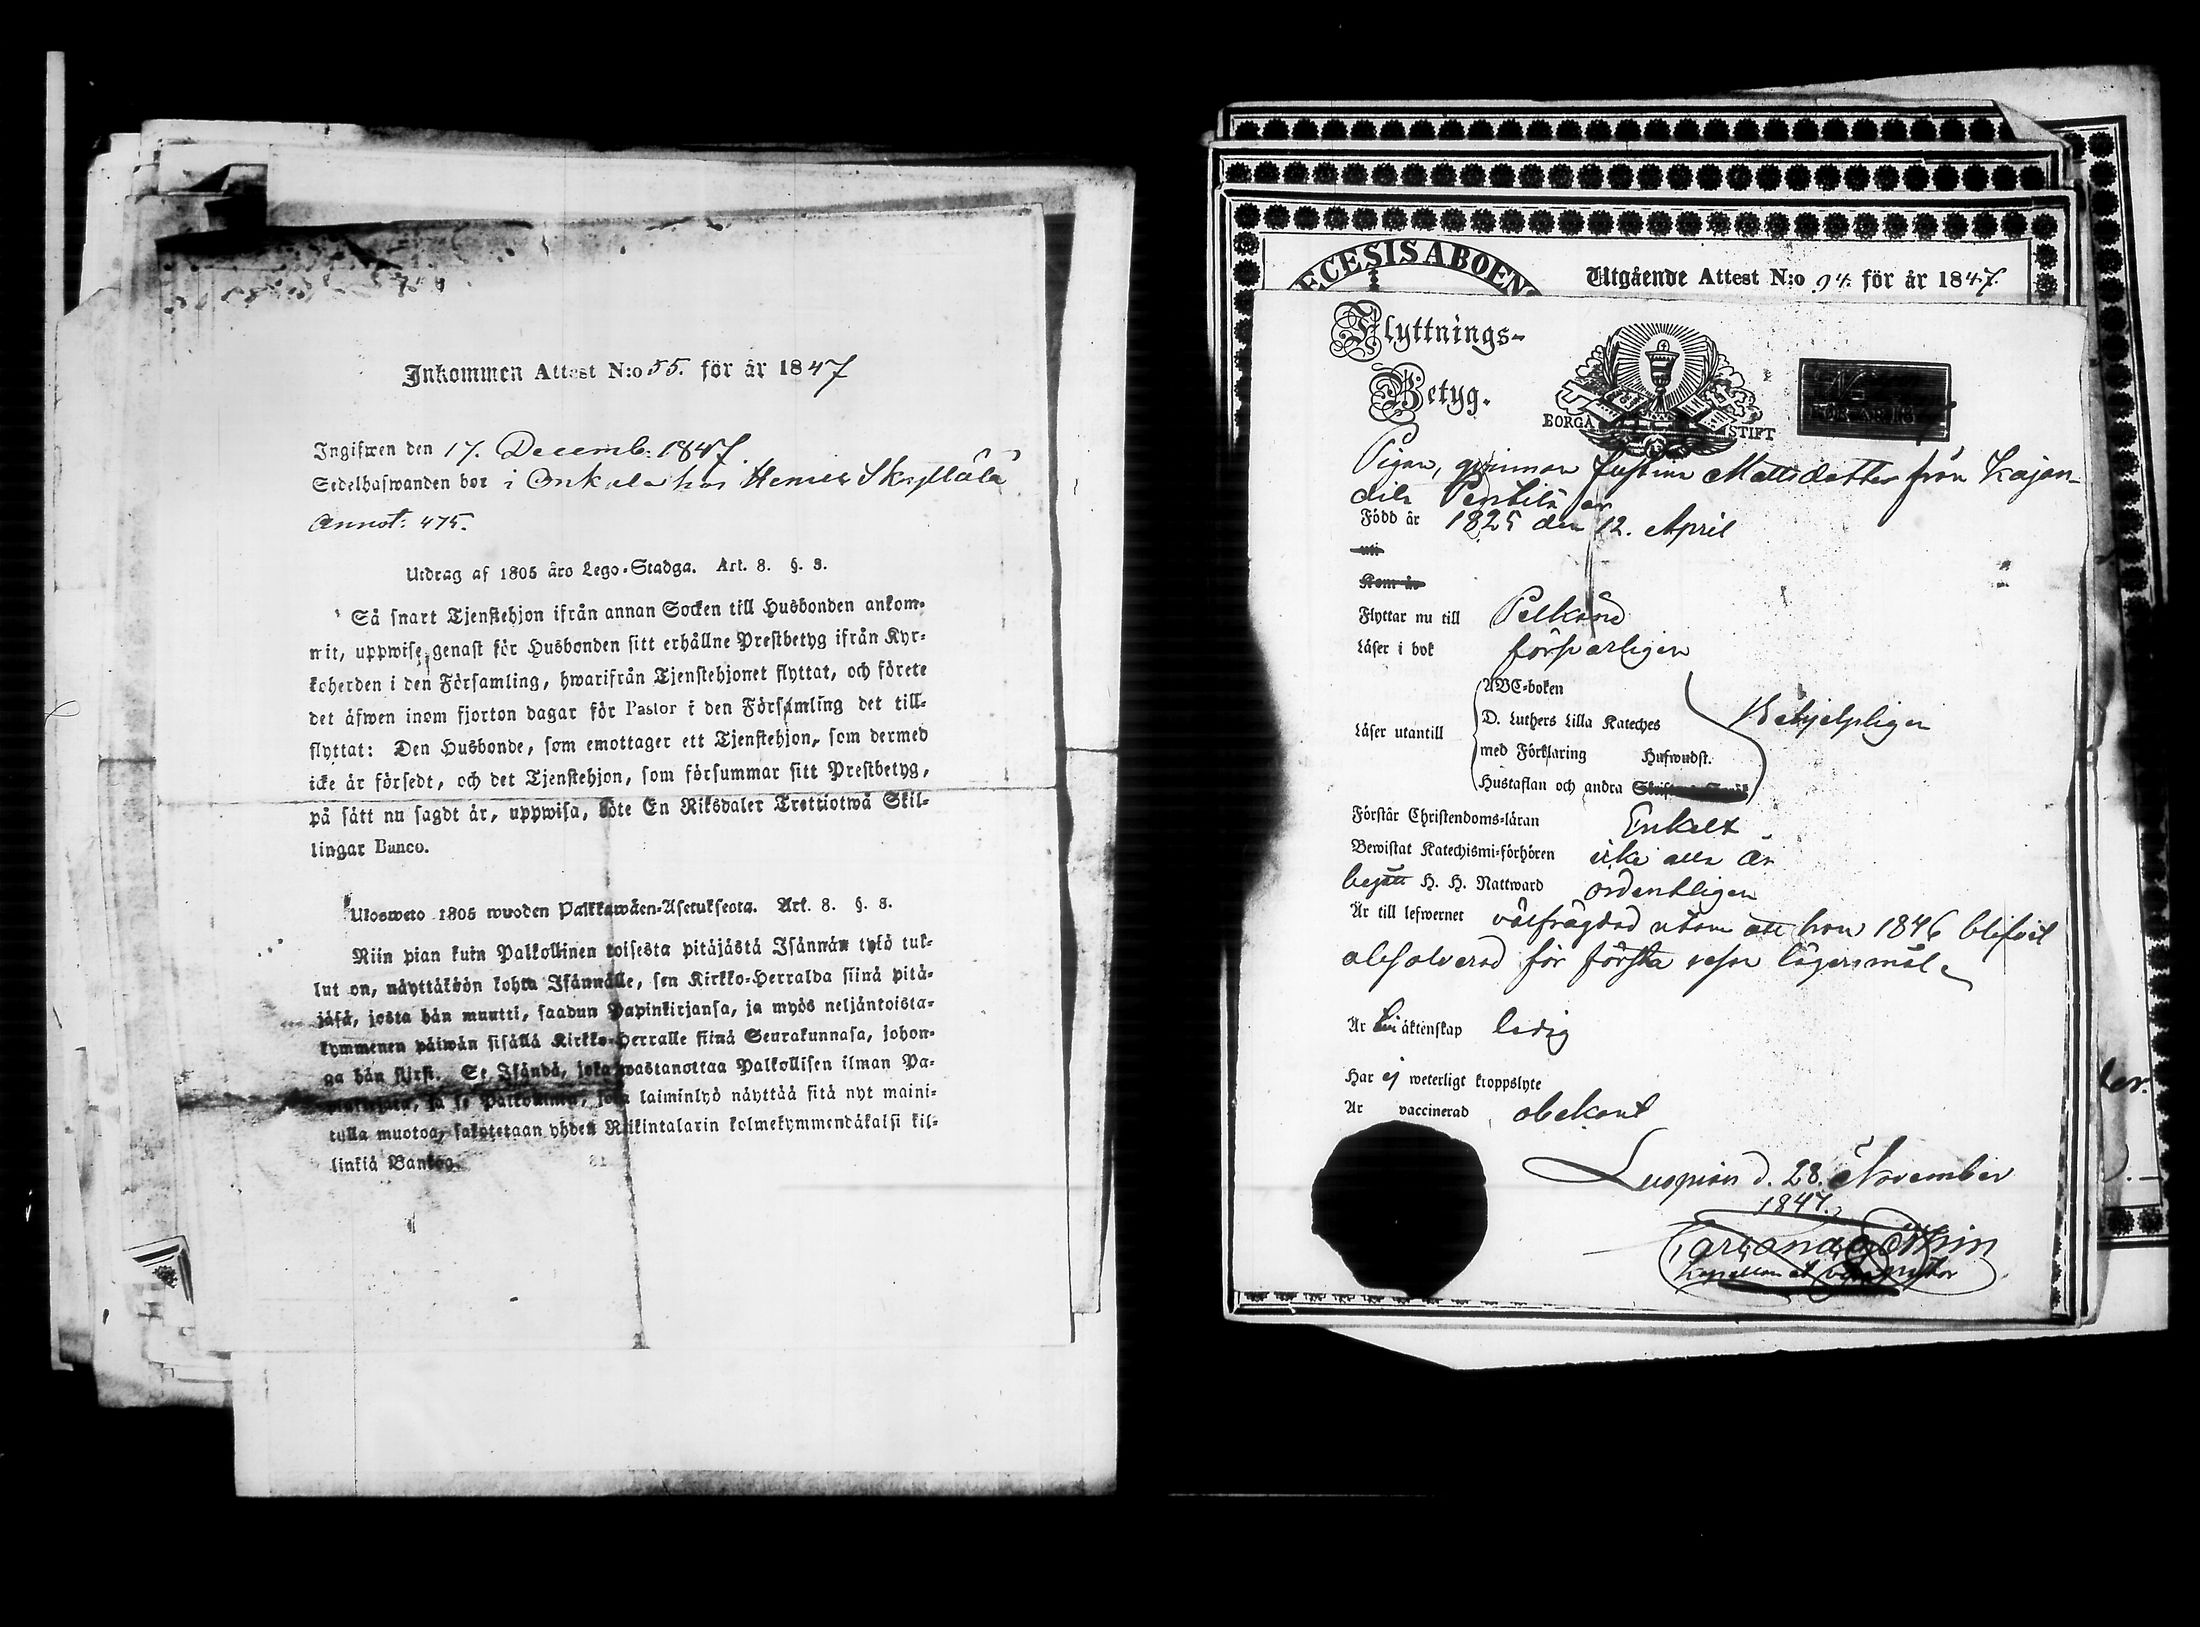 Inkommen Attest N:o 55. för år 1847
Ingifwen den 17. Decemb: 1847.
Sedelhafwanden bor i Onkala hos Skyttälä
Annot: 475.
Utdrag af 1805 års Lego-Stadga. Art. 8. §. 8.
Så snart Tjenstehjon ifrån annan Socken till Husbonden ankom-
mit, uppwise genast för Husbonden sitt erhållne Prestbetyg ifrån Kyr-
koherden i den Församling, hwarifrån Tjenstehjonet flyttat, och förete
det äfwen inom fjorton dagar för Pastor i den Församling det till-
flyttat: Den Husbonde, som emottager ett Tjenstehjon, som dermed
icke är försedt, och det Tjenstehjon, som försummar sitt Prestbetyg,
på sätt nu sagdt är, uppwisa, böte En Riksdaler Trettiotwå Skil-
lingar Banco.
Ulosweto 1805 wuoden Palkkawäen-Asetuksesta. Art. 8. §. 8.
Niin pian kuin Palkollinen toisesta pitäjästä Isännän tykö tul-
lut on, näyttäköön kohta Isännälle, sen Kirkko-Herralda siinä pitä-
jäsä, josta hän muutti, saadun Papinkirjansa, ja myös neljäntoista-
kymmenen päiwän sisällä Kirkko-Herralle siinä Seurakunnasa, johon-
ga hän siirsi. Se Isändä, joka wastanottaa Palkollisen ilman Pa-
pinkirjata, ja se Palkollinen, joka laiminlyö näyttää sitä nyt maini-
tulla muotoa, sakotetaan yhden Riikintalarin kolmekymmendäkaksi kil-
linkiä Bankoa.
ECESIS ABOEN
Utgående Attest N:o 94. för år 1847.
Flyttnings-
Betyg.
BORGÅ STIFT
FÖR ÅR 18
Pigan, qvinnan Justina Mattsdotter från Kajan-
dila Penttilä är
Född år 1825 den 12. April
uti
Kom år
Flyttar nu till Pelkäne
Läser i bok försvarligen
Läser utantill
ABC-boken
D. Luthers Lilla Kateches
med Förklaring Hufwudst.
Hustaflan och andra
Behjelpligen
Förstår Christendoms-läran Enkelt
Bewistat Katechismi-förhören icke alla år
begått H. H. Nattward ordentligen
Är till lefwernet välfrägdad utom att hon 1846 blifvit
absolverad för första resan lägersmål
Är äktenskap ledig
Har ej weterligt kroppslyte
Är vaccinerad obekant
Luopiois d. 28. November
1847.